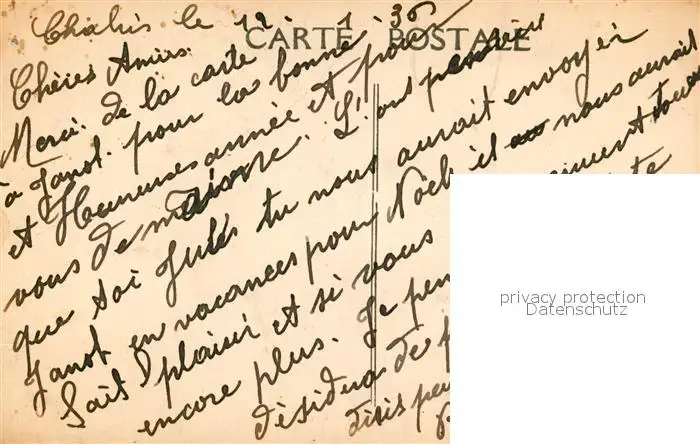 Chablis le 12 1 36
CARTE POSTALE
Chères Amies.
Merci de la carte
à Janot. pour la bonne
et Heureuse année et pour
vous de même. L'on pensait
que toi Jules tu nous aurait envoyer
Janot en vacances pour Noël il nous aurait
fait plaisir et si vous
encore plus. Je pen
désidua de
disis pe
privacy protection
Datenschutz